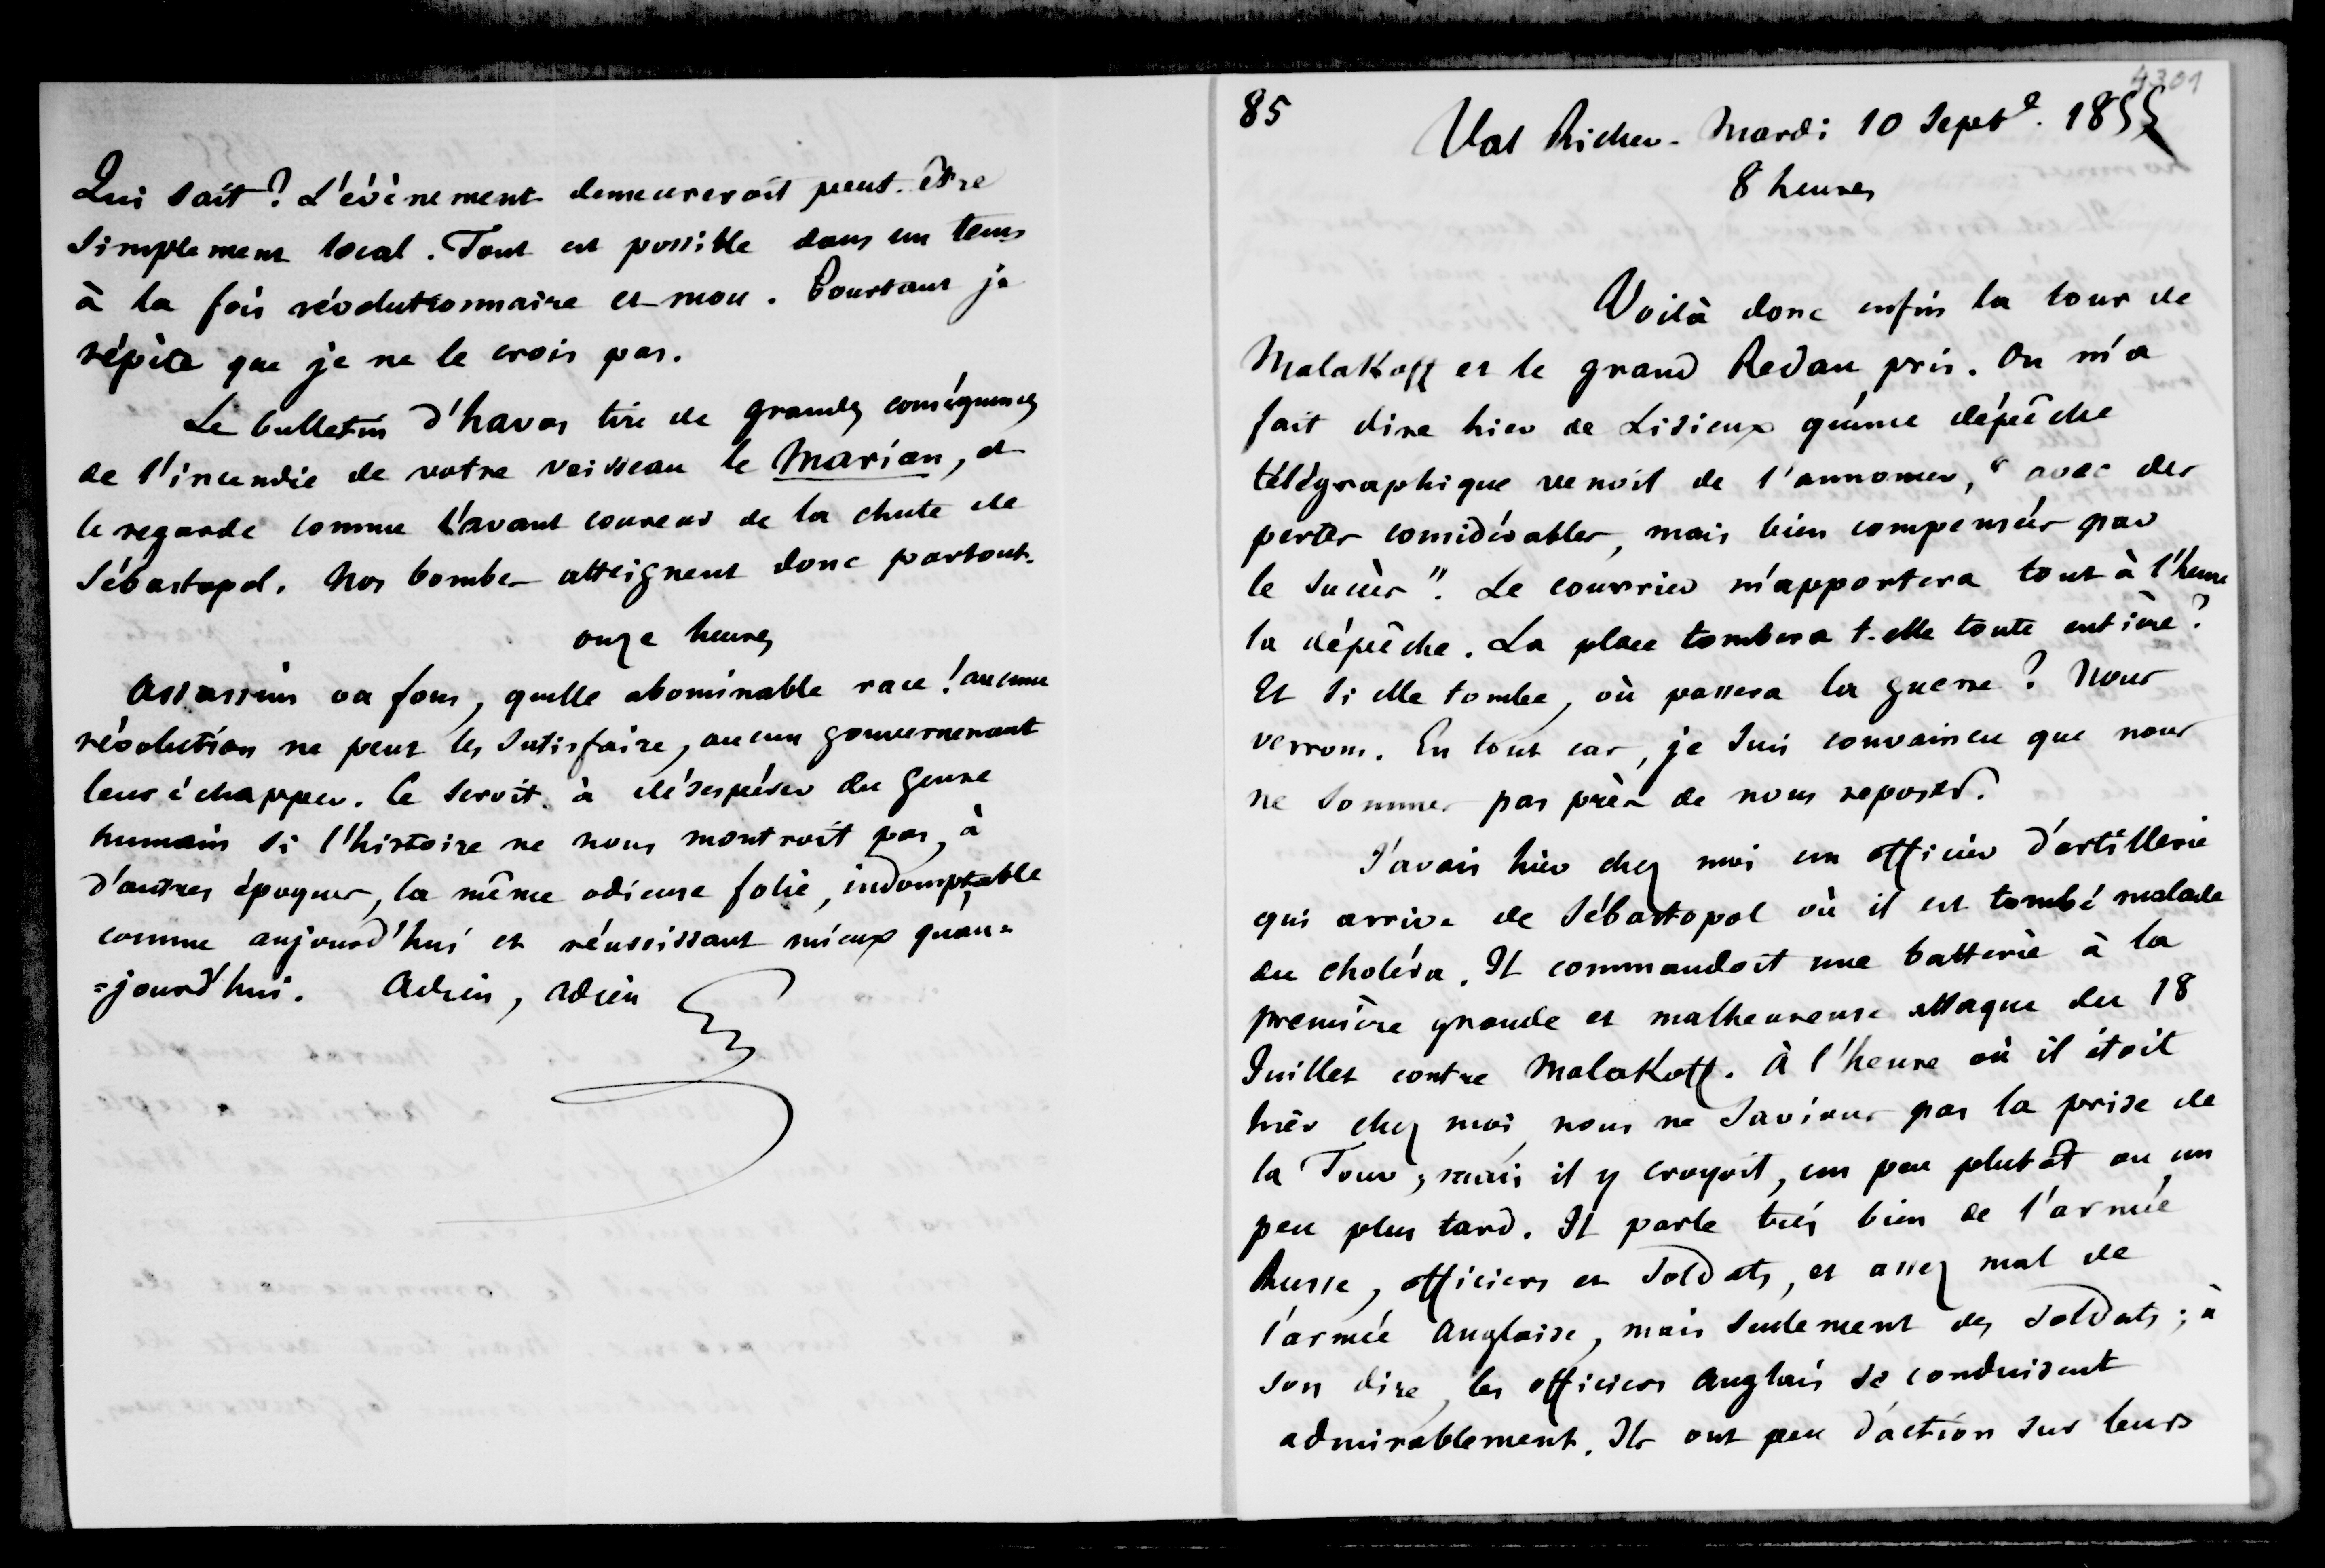 Qui sait ? L'évènement demeureroit peut-être
simplement local. Tout est possible dans un tems
à la fois révolutionnaire et mou. Pourtant je
répète que je ne le crois pas.
Le bulletin d'havas tire de grandes conséquences
de l'incendie de votre vaisseau le Marian, et
le regarde comme l'avant coureur de la chute de
Sébastopol. Nos bombes atteignent donc partout.
onze heures
Assassins ou fous, quelle abominable race ! aucune
révolution ne peut les satisfaire, aucun gouvernement
leur échapper. Ce seroit à désespérer du genre
humain si l'histoire ne nous montroit pas, à
d'autres époques, la même odieuse folie, indomptable
comme aujourd'hui et réussissant mieux qu'au=
=jourd'hui. Adieu, adieu
4301
85
Val Richer - Mardi 10 Septe. 1855
8 heures
Voilà donc enfin la tour de
Malakoff et le grand Redan pris. On m'a
fait dire hier de Lisieux qu'une dépêche
télégraphique venoit de l'annoncer, " avec des
pertes considérables, mais bien compensées par
le succès ". Le courrier m'apportera tout à l'heure
la dépêche. La place tombera t-elle toute entière ?
Et si elle tombe, où passera la guerre ? Nous
verrons. En tout cas, je suis convaincu que nous
ne sommes pas près de nous reposer.
J'avois hier chez moi un officier d'artillerie
qui arrive de Sébastopol où il est tombé malade
du choléra. Il commandoit une batterie à la
première grande et malheureuse attaque du 18
Juillet contre Malakoff. à l'heure où il étoit
hier chez moi, nous ne savions pas la prise de
la Tour, mais il y croyoit, un peu plutôt ou un
peu plus tard. Il parle très bien de l'armée
Russe, officiers et soldats, et assez mal de
l'armée Anglaise, mais seulement des soldats ; à
son dire, les officiers Anglais se conduisent
admirablement. Ils ont peu d'action sur leurs